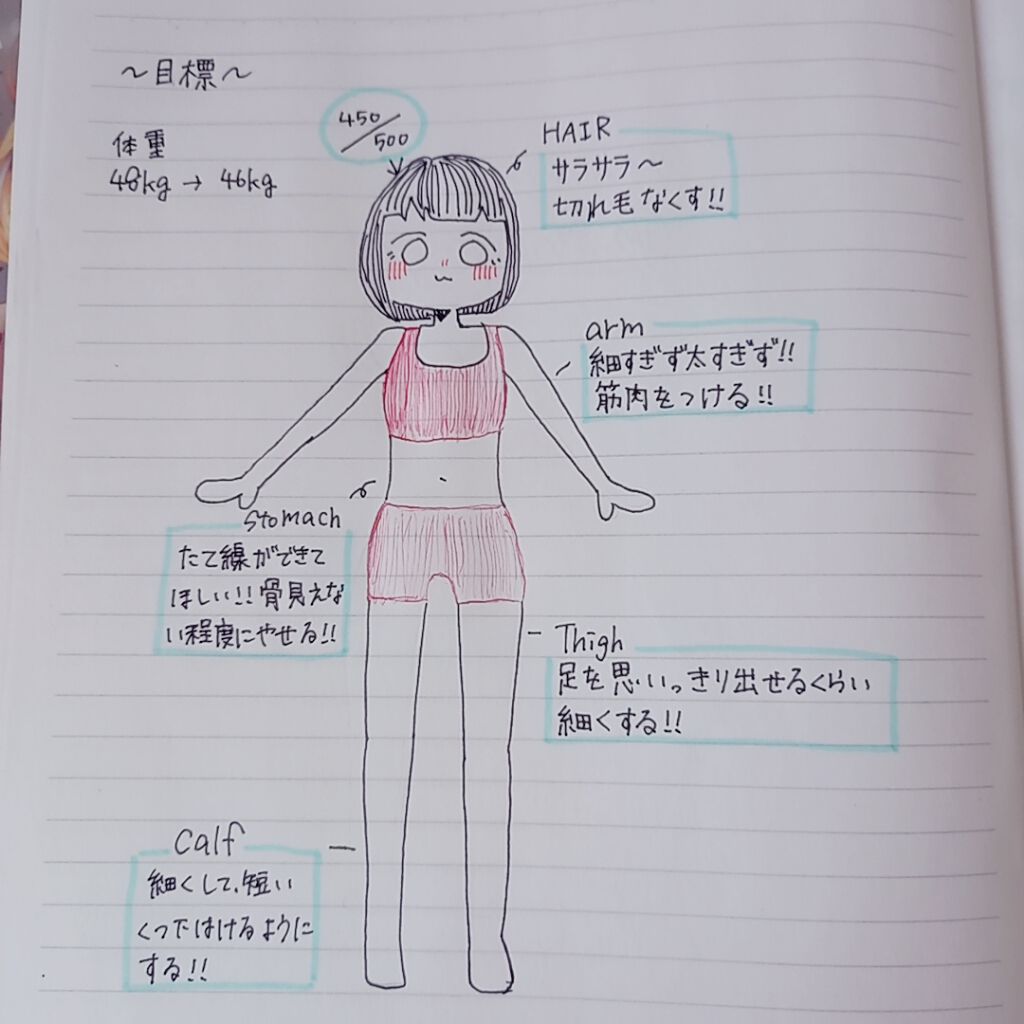 ～目標～
体重
48kg → 46kg
450/500
HAIR
サラサラ～
切れ毛なくす!!
arm
細すぎず太すぎず!!
筋肉をつける!!
Stomach
たて線ができて
ほしい!!骨見えな
い程度にやせる!!
Thigh
足を思いっきり出せるくらい
細くする!!
Calf
細くして、短い
くつ下はけるように
する!!